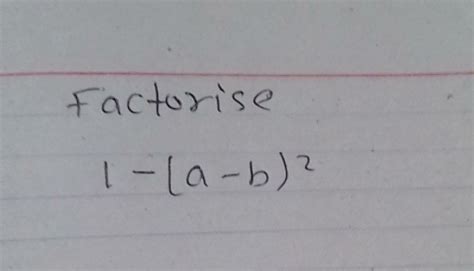 Factorise
1-(a-b)²